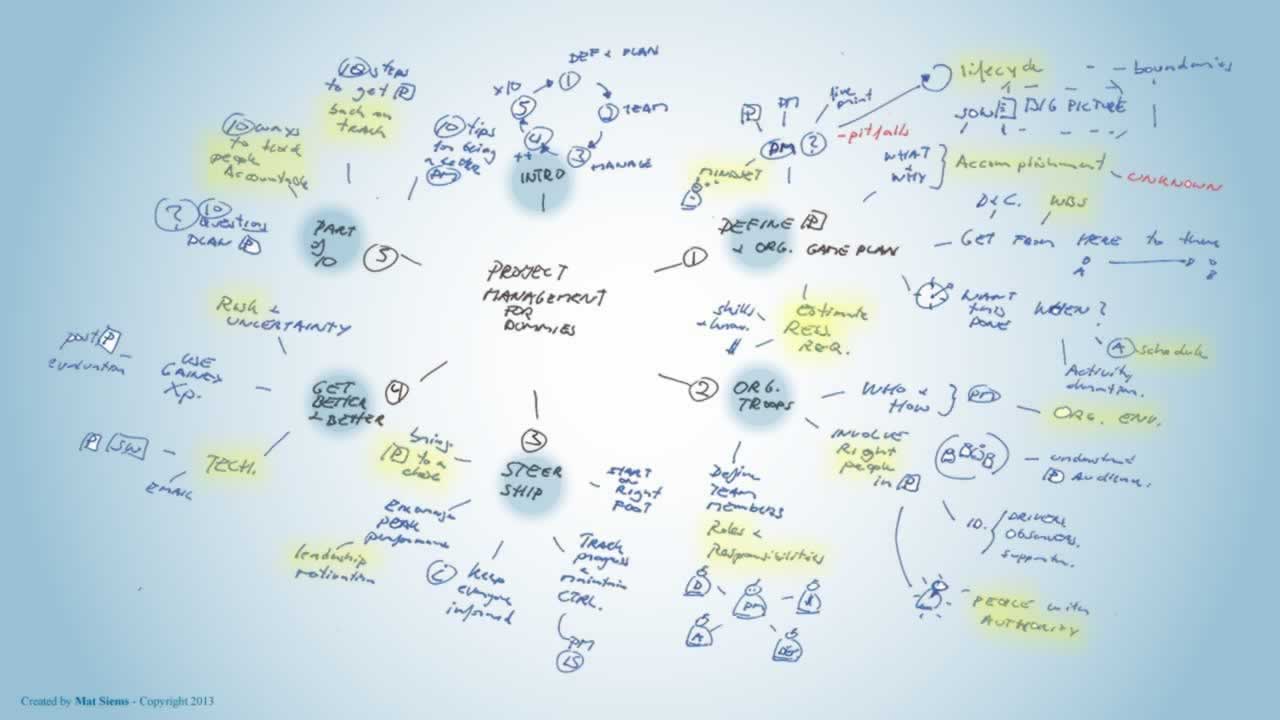 PROJECT
MANAGEMENT
FOR
DUMMIES
INTRO
DEF & PLAN
1
2 TEAM
3 MANAGE
4
++
5
x10
1
DEFINE P
& ORG. GAME PLAN
MINDSET
P
PM
PM ?
live
- pitfalls
lifecycle
boundaries
SOW
BIG PICTURE
WHAT
+
WHY
Accomplishment
UNKNOWN
WBS
GET FROM HERE to there
A
B
WANT
this
DONE
WHEN?
A schedule
Activity
duration.
2
ORG.
TROOPS
Estimate
RES.
REQ.
skills
& know.
$
WHO &
HOW
PM
ORG. ENV.
INVOLVE
Right
people
in P
understand
P Audience.
ID.
DRIVERS
OBSERVERS.
supporters.
PEOPLE with
AUTHORITY
Define
TEAM
MEMBERS
Roles &
Responsibilities
D
PM
A
3
STEER
SHIP
START
on
Right
FOOT
TRACK
progress
&
maintain
CTRL.
PM
IS
i keep
everyone
informed
Encourage
PEAK
performance
leadership
motivation
bring
P to a
close
4
GET
BETTER
& BETTER
Risk &
UNCERTAINTY
USE
GAINED
Xp.
post P
evaluation
TECH.
P SW
EMAIL
5
PART
of
10
? 10
Questions
PLAN P
10 ways
to hold
people
Accountable
10 steps
to get P
back on
track
10 tips
for being
a better
PM
Created by Mat Siems - Copyright 2013